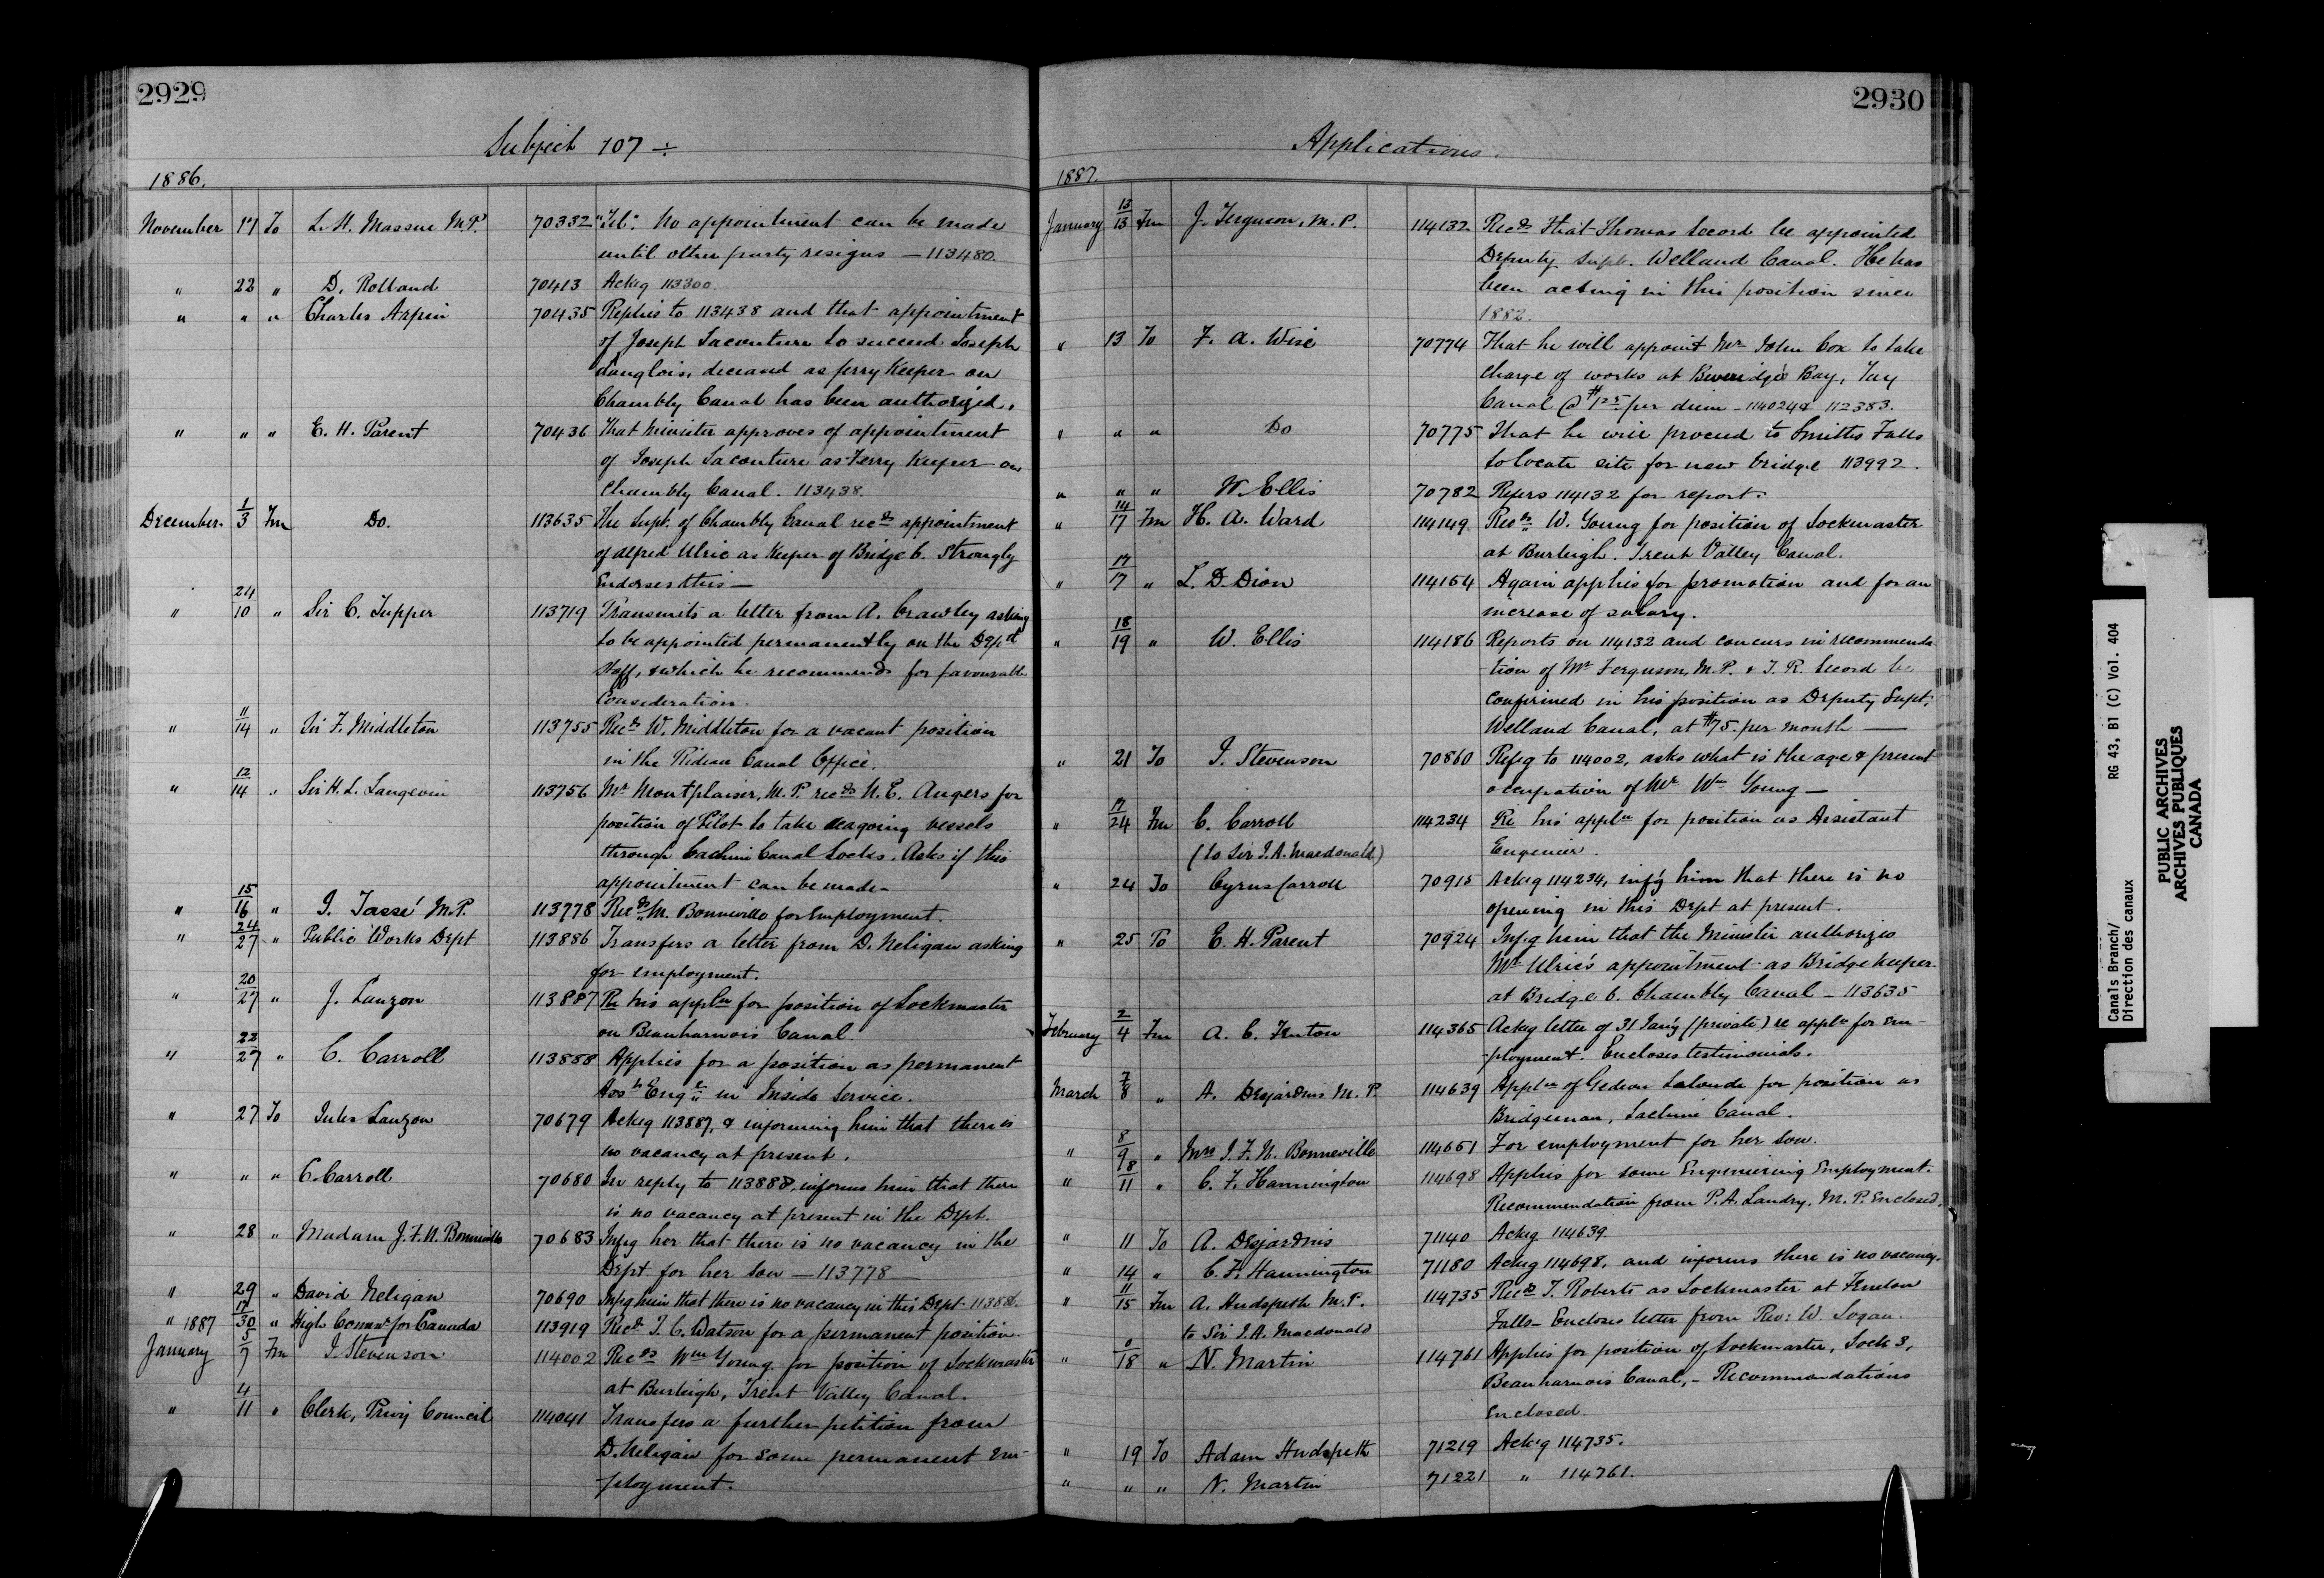 2929
Subject 107 ÷
1886.
November 17 To L. H. Massue M.P. 70332 "Tel". No appointment can be made
until other party resigns — 113480.
" 22 " D. Rolland 70413 Ackg 113300.
" " " Charles Arpin 70435 Replies to 113438 and that appointment
of Joseph Lacouture to succeed Joseph
Langlois, deceased as ferry Keeper on
Chambly Canal has been authorized.
" " " E. H. Parent 70436 That Minister approves of appointment
of Joseph Lacouture as Ferry Keeper on
Chambly Canal. 113438.
December. 1/3 Fm Do. 113635 The Supt. of Chambly Canal recds appointment
of Alfred Ulric as Keeper of Bridge 6. Strongly
Endorses this —
" 24/10 " Sir C. Tupper 113719 Transmits a letter from A. Crawley asking
to be appointed permanently on the Deptl
Staff, & which he recommends for favourable
Consideration.
" 11/14 " Sir F. Middleton 113755 Recds W. Middleton for a vacant position
in the Rideau Canal Office.
" 12/14 " Sir H. L. Langevin 113756 Mr Montplaisir, M.P. recds N. E. Angers for
position of Pilot to take seagoing vessels
through Lachine Canal Locks. Asks if this
appointment can be made –
" 15/16 " J. Tassé M.P. 113778 Recds M. Bonneville for Employment.
" 24/27 " Public Works Dept 113886 Transfers a letter from D. Neligan asking
for employment.
" 20/27 " J. Lauzon 113887 Re his appln for position of Lockmaster
on Beauharnois Canal.
" 22/27 " C. Carroll 113888 Applies for a position as permanent
Asst Engr in Inside Service.
" 27 To Jules Lauzon 70679 Ackg 113887, & informing him that there is
no vacancy at present.
" " " C. Carroll 70680 In reply to 113888, informs him that there
is no vacancy at present in the Dept.
" 28 " Madam J. F. N. Bonneville 70683 Infg her that there is no vacancy in the
Dept for her son — 113778 —
" 29 " David Neligan 70690 Infg him that there is no vacancy in this Dept. 113886.
" 1887 17/30 " High Commr for Canada 113919 Recds J. C. Watson for a permanent position.
January 5/7 Fm J. Stevenson 114002 Recds Wm Young for position of Lockmaster
at Burleigh, Trent Valley Canal.
" 4/11 " Clerk, Privy Council 114041 Transfers a further petition from
D. Neligan for some permanent em-
ployment.
2930
Applications.
1887.
January 13/13 Fm J. Ferguson, M.P. 114132 Recds that Thomas Secord be appointed
Deputy Supt. Welland Canal. He has
been acting in this position since
1882.
" 13 To F. A. Wise 70774 That he will appoint Mr John Cox to take
charge of works at Beveridge's Bay, Tay
Canal @ $1.25 per diem – 114024 & 112383.
" " " Do 70775 That he will proceed to Smiths Falls
to locate site for new bridge 113992.
" " " W. Ellis 70782 Refers 114132 for report.
" 14/17 Fm H. A. Ward 114149 Recds W. Young for position of Lockmaster
at Burleigh. Trent Valley Canal.
" 17/17 " L. D. Dion 114164 Again applies for promotion and for an
increase of salary.
" 18/19 " W. Ellis 114186 Reports on 114132 and concurs in recommenda
-tion of Mr Ferguson, M.P. & T. R. Secord be
confirmed in his position as Deputy Supt.
Welland Canal, at $75. per month —
" 21 To J. Stevenson 70860 Refg to 114002, asks what is the age & present
occupation of Mr Wm Young —
" 17/24 Fm C. Carroll 114234 Re his appln for position as Assistant
(to Sir J. A. Macdonald) Engineer.
" 24 To Cyrus Carroll 70915 Ackg 114234, infg him that there is no
opening in this Dept at present.
" 25 To E. H. Parent 70924 Infg him that the Minister authorizes
Mr Ulric's appointment as Bridge keeper
at Bridge 6. Chambly Canal – 113635
February 2/4 Fm A. C. Fenton 114365 Ackg letter of 31 Jany (private) re appln for em-
-ployment. Encloses testimonials.
March 7/8 " A. Desjardins M.P. 114639 Appln of Gedeon Lalonde for position as
Bridgeman, Lachine Canal.
" 8/9 " Mrs J. F. N. Bonneville 114661 For employment for her son.
" 8/11 " C. F. Hannington 114698 Applies for some Engineering Employment.
Recommendation from P. A. Landry, M.P. Enclosed.
" 11 To A. Desjardins 71140 Ackg 114639.
" 14 " C. F. Hannington 71180 Ackg 114698, and informs there is no vacancy.
" 11/15 Fm A. Hudspeth M.P. 114735 Recds T. Roberts as Lockmaster at Fenelon
to Sir J. A. Macdonald Falls – Encloses letter from Rev: W. Logan.
" 0/18 " N. Martin 114761 Applies for position of Lockmaster, Lock 3,
Beauharnois Canal, – Recommendations
Enclosed.
" 19 To Adam Hudspeth 71219 Ackg 114735.
" " " N. Martin 71221 " 114761.
Canals Branch/ RG 43, B1 (C) Vol. 404
Direction des canaux
PUBLIC ARCHIVES
ARCHIVES PUBLIQUES
CANADA